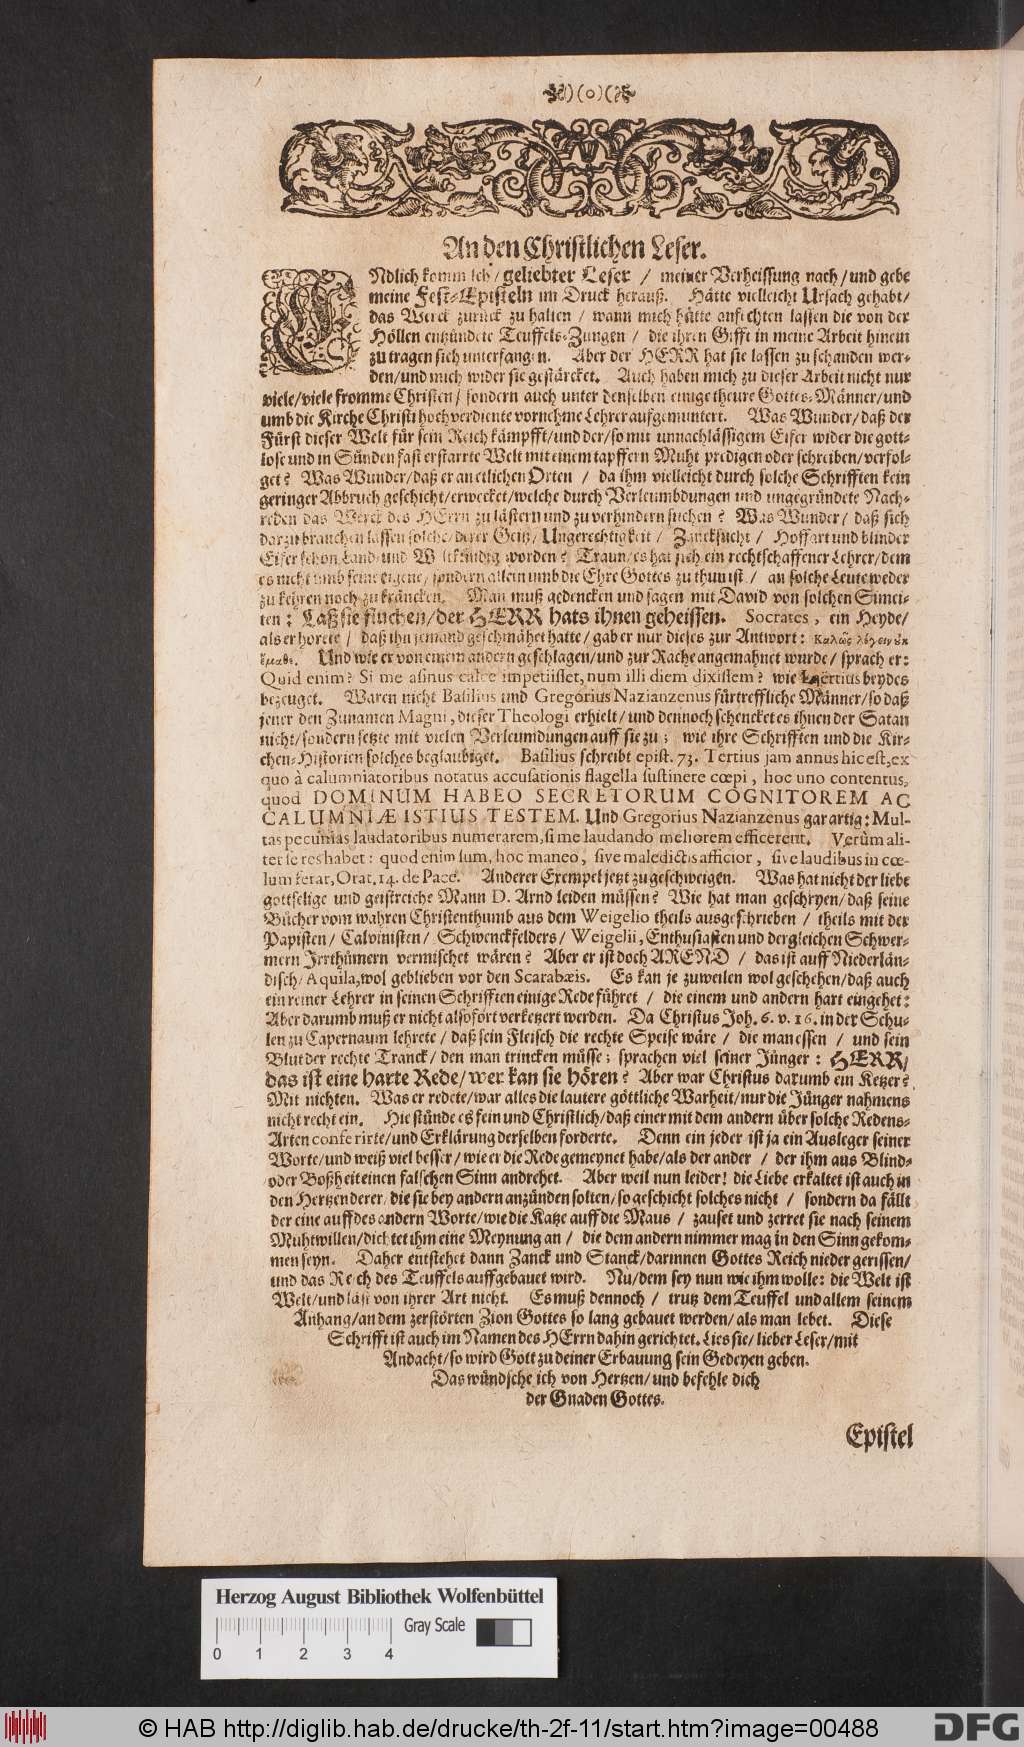 )(o)(
An den Christlichen Leser.
ENdlich komm ich / geliebter Leser / meiner Verheissung nach / und gebe
meine Fest-Episteln im Druck herauß. Hätte vielleicht Ursach gehabt /
das Werck zurück zu halten / wann mich hätte anfechten lassen die von der
Höllen entzündete Teuffels-Zungen / die ihren Gifft in meine Arbeit hinein
zu tragen sich unterfangen. Aber der HERR hat sie lassen zu schanden wer-
den / und mich wider sie gestärcket. Auch haben mich zu dieser Arbeit nicht nur
viele / viele fromme Christen / sondern auch unter denselben einige theure Gottes-Männer / und
umb die Kirche Christi hochverdiente vornehme Lehrer aufgemuntert. Was Wunder / daß der
Fürst dieser Welt für sein Reich kämpfft / und der / so mit unnachlässigem Eifer wider die gott-
lose und in Sünden fast erstarrte Welt mit einem tapffern Muht predigen oder schreiben / verfol-
get? Was Wunder / daß er an etlichen Orten / da ihm vielleicht durch solche Schrifften kein
geringer Abbruch geschicht / erwecket / welche durch Verleumbdungen und ungegründete Nach-
reden das Werck des HErrn zu lästern und zu verhindern suchen? Was Wunder / daß sich
darzu brauchen lassen solche / derer Geitz / Ungerechtigkeit / Zancksucht / Hoffart und blinder
Eifer schon Land- und Weltkündig worden? Traun / es hat sich ein rechtschaffener Lehrer / dem
es nicht umb seine eigene / sondern allein umb die Ehre Gottes zu thun ist / an solche Leute weder
zu kehren noch zu kräncken. Man muß gedencken und sagen mit David von solchen Simei-
ten: Laß sie fluchen / der HERR hats ihnen geheissen. Socrates, ein Heyde /
als er horete / daß ihn jemand geschmähet hatte / gab er nur dieses zur Antwort: Καλῶς λέγειν ὐκ
ἔμαθε. Und wie er von einem andern geschlagen / und zur Rache angemahnet wurde / sprach er:
Quid enim? Si me asinus calce impetiisset, num illi diem dixissem? wie Laërtius beydes
bezeuget. Waren nicht Basilius und Gregorius Nazianzenus fürtreffliche Männer / so daß
jener den Zunamen Magni, dieser Theologi erhielt / und dennoch schencket es ihnen der Satan
nicht / sondern setzte mit vielen Verleumdungen auff sie zu; wie ihre Schrifften und die Kir-
chen-Historien solches beglaubiget. Basilius schreibt epist. 73. Tertius jam annus hic est, ex
quo à calumniatoribus notatus accusationis flagella sustinere cœpi, hoc uno contentus,
quod DOMINUM HABEO SECRETORUM COGNITOREM AC
CALUMNIÆ ISTIUS TESTEM. Und Gregorius Nazianzenus gar artig: Mul-
tas pecunias laudatoribus numerarem, si me laudando meliorem efficerent. Verùm ali-
ter se res habet: quod enim sum, hoc maneo, sive maledictis afficior, sive laudibus in cœ-
lum ferar, Orat. 14. de Pace. Anderer Exempel jetzt zu geschweigen. Was hat nicht der liebe
gottselige und geistreiche Mann D. Arnd leiden müssen? Wie hat man geschryen / daß seine
Bücher vom wahren Christenthumb aus dem Weigelio theils ausgeschrieben / theils mit der
Papisten / Calvinisten / Schwenckfelders / Weigelii, Enthusiasten und dergleichen Schwer-
mern Irrthümern vermischet wären? Aber er ist doch AREND / das ist auff Niederlän-
disch / Aquila, wol geblieben vor den Scarabæis. Es kan je zuweilen wol geschehen / daß auch
ein reiner Lehrer in seinen Schrifften einige Rede führet / die einem und andern hart eingehet:
Aber darumb muß er nicht alsofort verketzert werden. Da Christus Joh. 6. v. 16. in der Schu-
len zu Capernaum lehrete / daß sein Fleisch die rechte Speise wäre / die man essen / und sein
Blut der rechte Tranck / den man trincken müsse; sprachen viel seiner Jünger: HERR /
das ist eine harte Rede / wer kan sie hören? Aber war Christus darumb ein Ketzer?
Mit nichten. Was er redete / war alles die lautere göttliche Warheit / nur die Jünger nahmens
nicht recht ein. Hie stünde es fein und Christlich / daß einer mit dem andern über solche Redens-
Arten conferirte / und Erklärung derselben forderte. Denn ein jeder ist ja ein Ausleger seiner
Worte / und weiß viel besser / wie er die Rede gemeynet habe / als der ander / der ihm aus Blind-
oder Boßheit einen falschen Sinn andrehet. Aber weil nun leider! die Liebe erkaltet ist auch in
den Hertzen derer / die sie bey andern anzünden solten / so geschicht solches nicht / sondern da fällt
der eine auff des andern Worte / wie die Katze auff die Maus / zauset und zerret sie nach seinem
Muhtwillen / dichtet ihm eine Meynung an / die dem andern nimmer mag in den Sinn gekom-
men seyn. Daher entstehet dann Zanck und Stanck / darinnen Gottes Reich niedergerissen /
und das Reich des Teuffels auffgebauet wird. Nu / dem sey nun wie ihm wolle: die Welt ist
Welt / und läst von ihrer Art nicht. Es muß dennoch / trutz dem Teuffel und allem seinem
Anhang / an dem zerstörten Zion Gottes so lang gebauet werden / als man lebet. Diese
Schrifft ist auch im Namen des HErrn dahin gerichtet. Lies sie / lieber Leser / mit
Andacht / so wird Gott zu deiner Erbauung sein Gedeyen geben.
Das wündsche ich von Hertzen / und befehle dich
der Gnaden Gottes.
Epistel
Herzog August Bibliothek Wolfenbüttel
0 1 2 3 4 Gray Scale
© HAB http://diglib.hab.de/drucke/th-2f-11/start.htm?image=00488
DFG